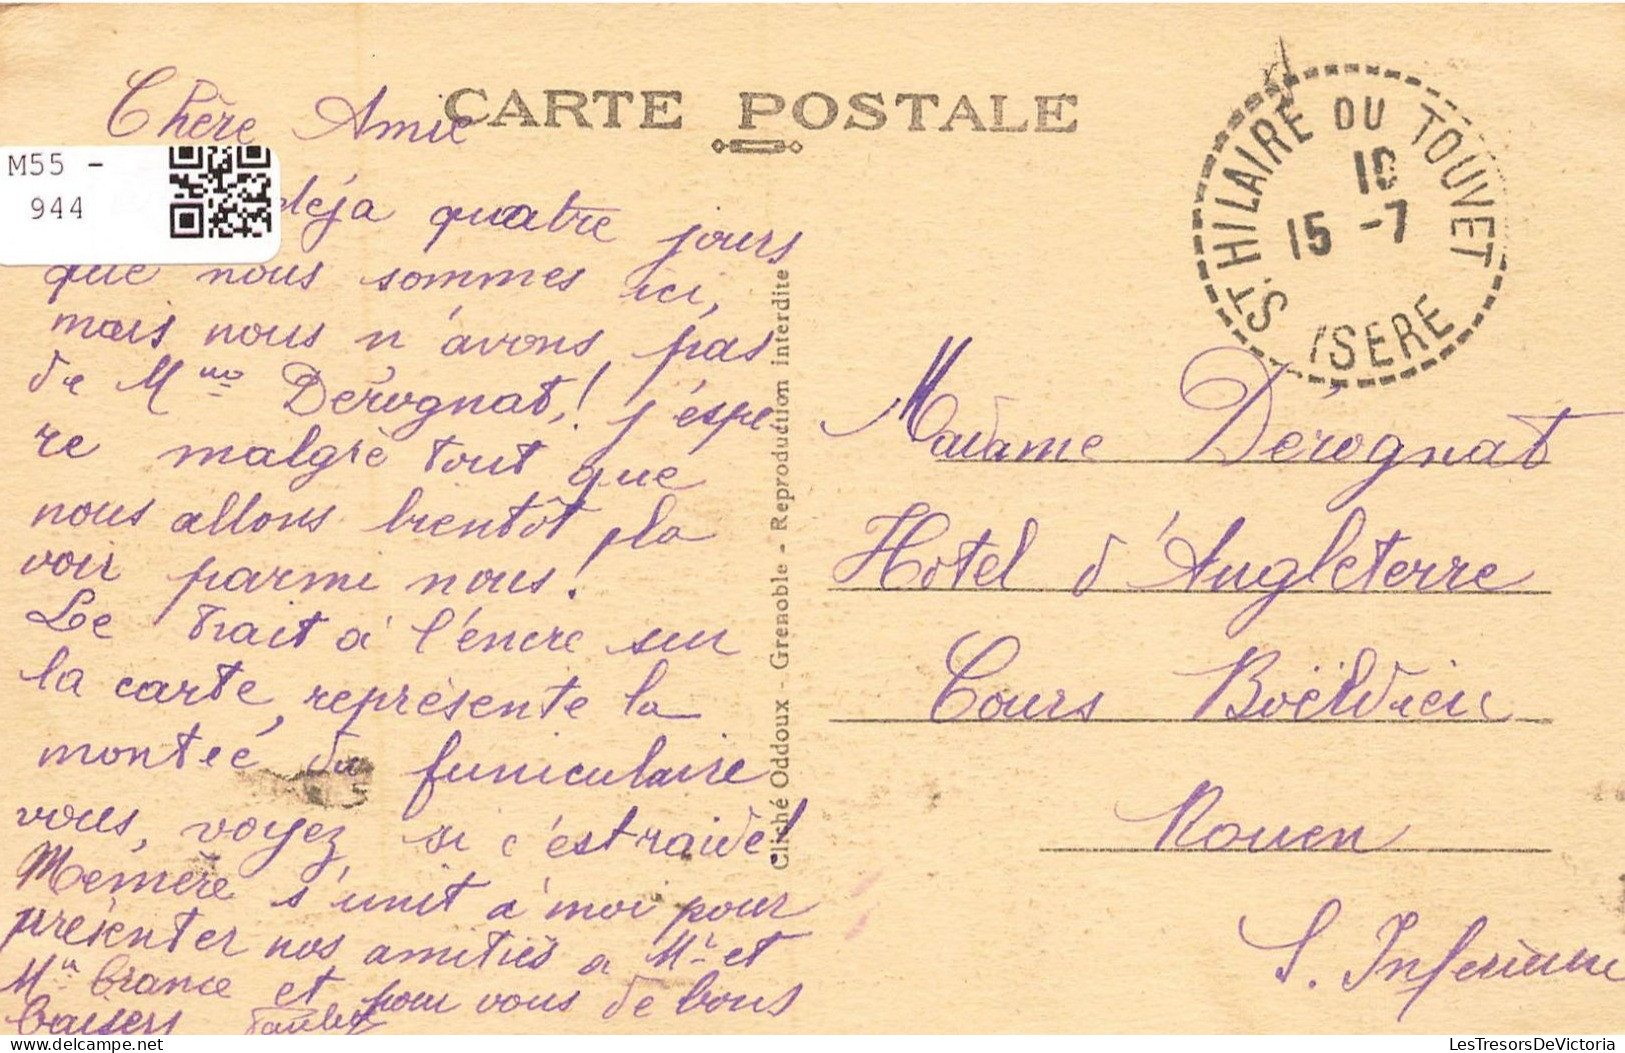 CARTE POSTALE
Chère Amie
M55 -
944
déja quatre jours
que nous sommes ici,
mais nous n'avons pas
de Mme Dérognat! j'espè
re malgré tout que
nous allons bientôt la
voir parmi nous!
Le trait à l'encre sur
la carte, représente la
montée du funiculaire
vous, voyez si c'est raide!
Mémère s'unit à moi pour
présenter nos amitiés a Mr et
Mme France et pour vous de bons
baisers
Cliché Oddoux - Grenoble - Reproduction interdite
ST HILAIRE DU TOUVET
10
15 -7
ISERE
Madame Dérognat
Hotel d'Angleterre
Cours Boëldieu
Rouen
S. Inferieure
LesTresorsDeVictoria